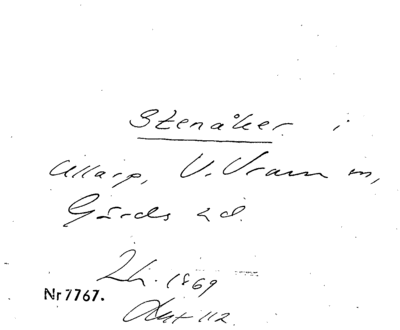 Stenåker i
Ullarp, V. Vram sn,
Gärds hd.
Lh. 1869
Nr 7767.
112